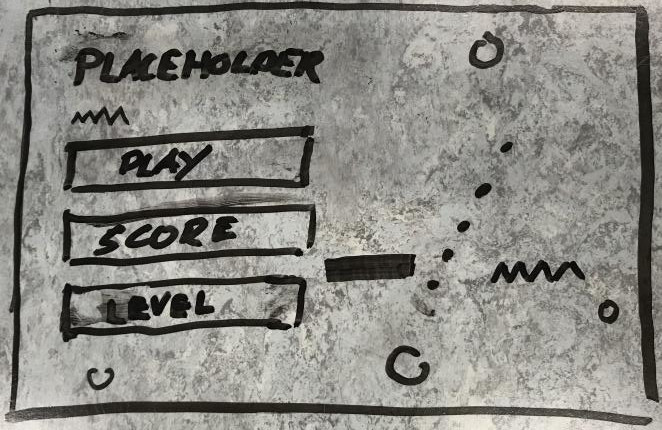 PLACEHOLDER
PLAY
SCORE
LEVEL